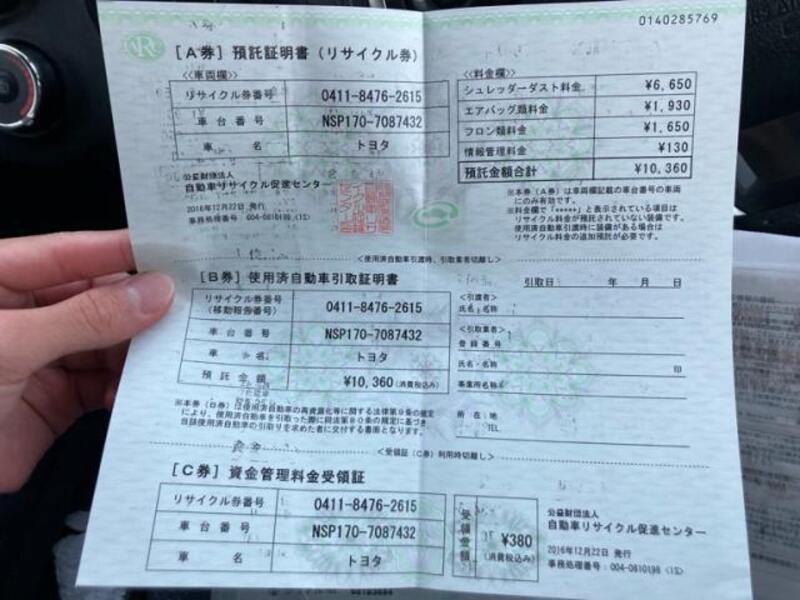 0140285769
ARC
[A券] 預託証明書 (リサイクル券)
<<車両欄>>
リサイクル券番号 0411-8476-2615
車台番号 NSP170-7087432
車名 トヨタ
<<料金欄>>
シュレッダーダスト料金 ¥6,650
エアバッグ類料金 ¥1,930
フロン類料金 ¥1,650
情報管理料金 ¥130
預託金額合計 ¥10,360
公益財団法人
自動車リサイクル促進センター
2016年12月22日 発行
事務処理番号:004-0810198 (1S)
※本券(A券)は車両欄記載の車台番号の車両
にのみ有効です。
※料金欄で「*****」と表示されている項目は
リサイクル料金が預託されていない装備です。
使用済自動車引渡時に装備がある場合は
リサイクル料金の追加預託が必要です。
<使用済自動車引渡時、引取業者切離し>
[B券] 使用済自動車引取証明書
引取日: 年 月 日
リサイクル券番号
(移動報告番号) 0411-8476-2615
車台番号 NSP170-7087432
車名 トヨタ
預託金額 ¥10,360 (消費税込み)
<引渡者>
氏名・名称
<引取業者>
登録番号
氏名・名称 印
事業所名称
所在地
TEL
※本券(B券)は使用済自動車の再資源化等に関する法律第9条の規定
により、使用済自動車を引取った際に同法第80条の規定に基づき
当該使用済自動車の引取りを求めた者に交付する書面となります。
<受領証(C券)利用時切離し>
[C券] 資金管理料金受領証
リサイクル券番号 0411-8476-2615
車台番号 NSP170-7087432
車名 トヨタ
受領金額 ¥380
(消費税込み)
公益財団法人
自動車リサイクル促進センター
2016年12月22日 発行
事務処理番号:004-0810198 (1S)